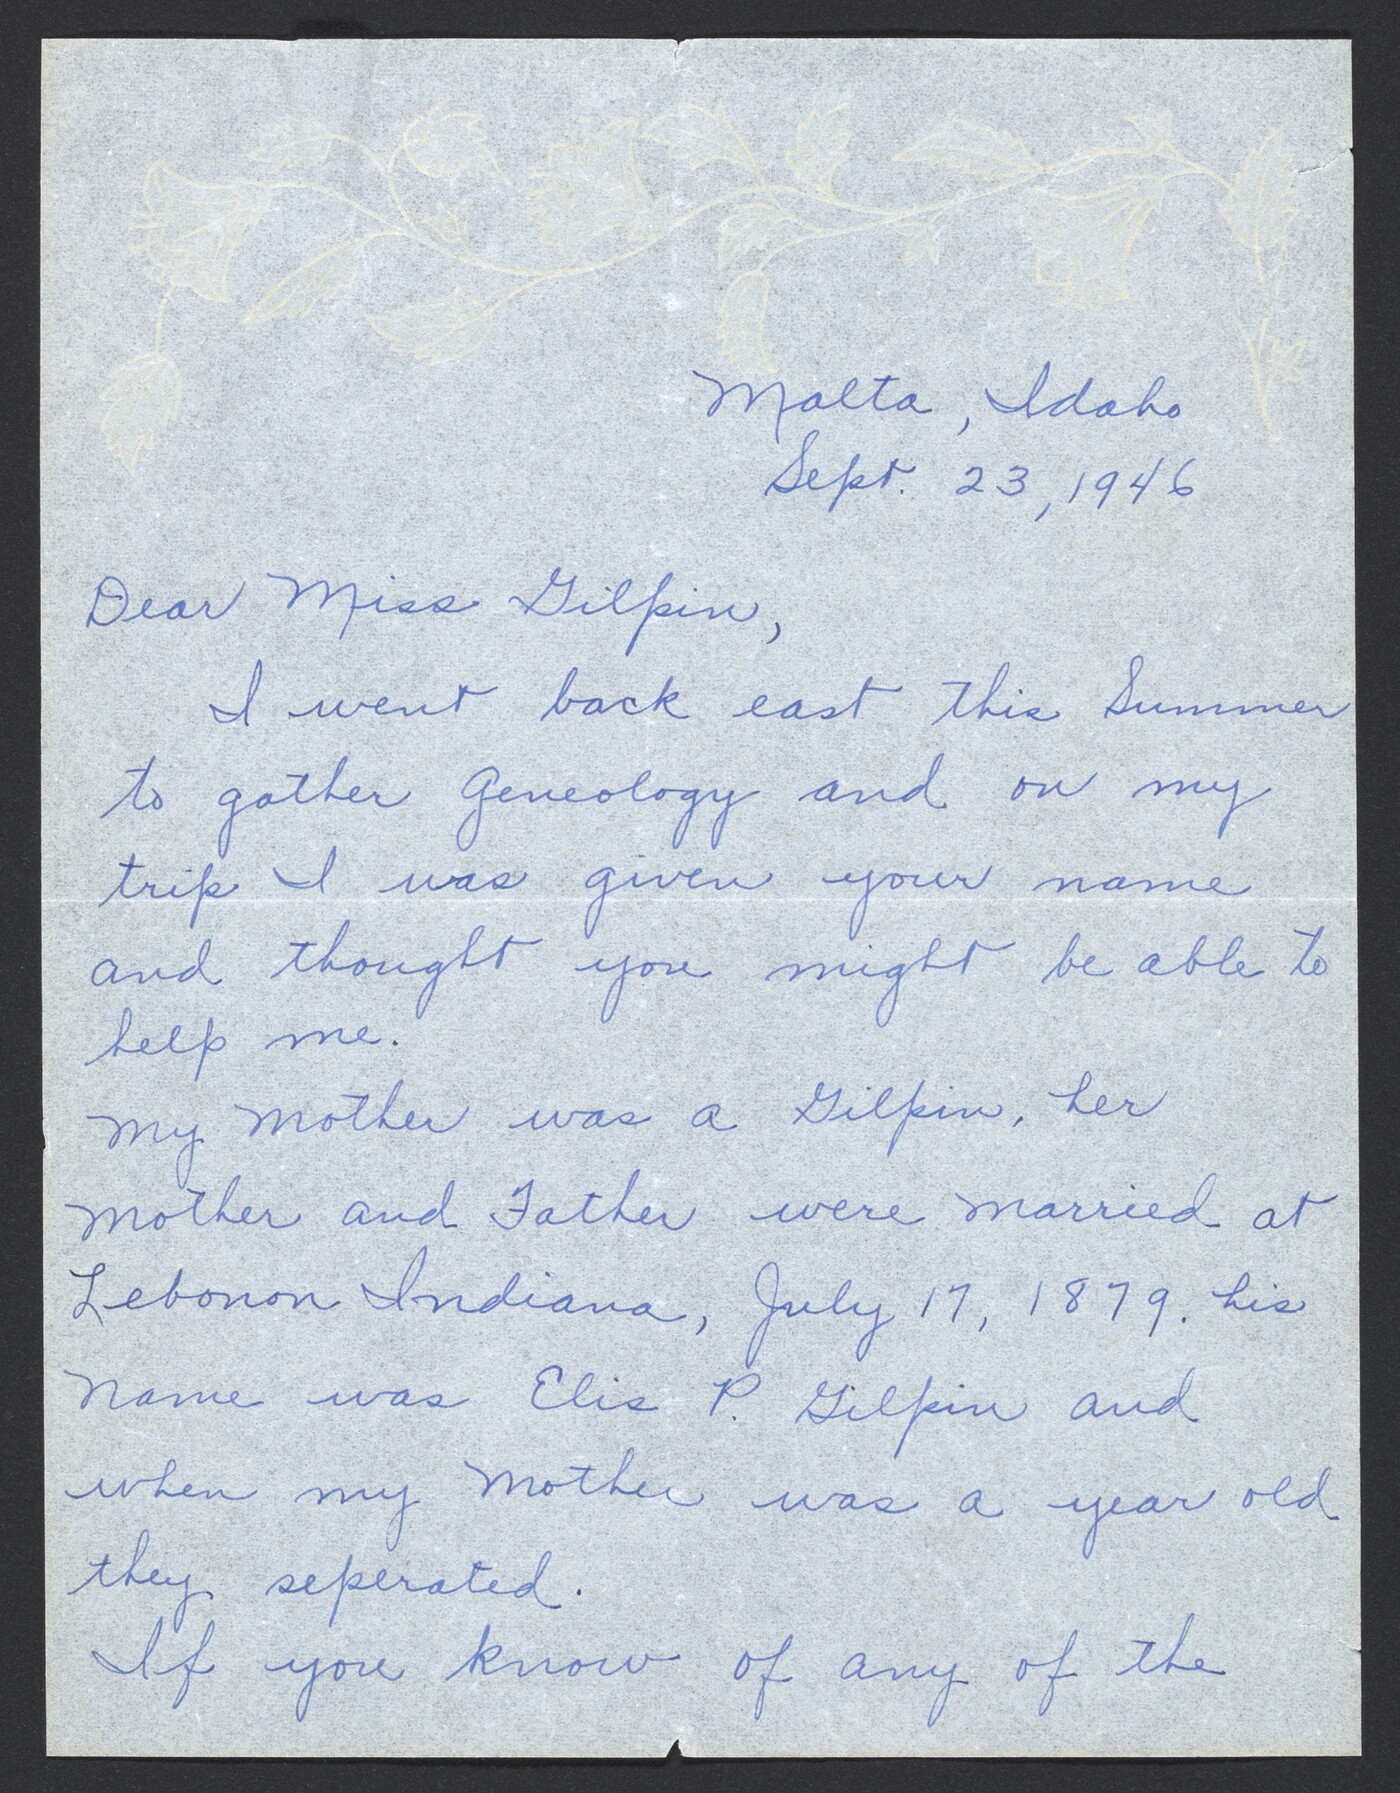 Malta, Idaho
Sept. 23, 1946
Dear Miss Gilpin,
I went back east this Summer
to gather Geneology and on my
trip I was given your name
and thought you might be able to
help me.
My Mother was a Gilpin, her
Mother and Father were married at
Lebonon Indiana, July 17, 1879. his
Name was Elis P. Gilpin and
when my Mother was a year old
they seperated.
If you know of any of the